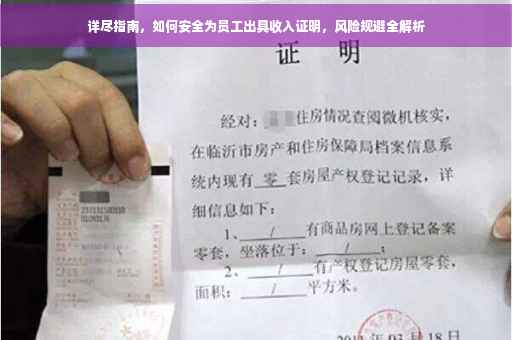 详尽指南，如何安全为员工出具收入证明，风险规避全解析
证 明
经对：住房情况查阅微机核实，
在临沂市房产和住房保障局档案信息系
统内现有 零 套房屋产权登记记录，详
细信息如下：
1、 / 有商品房网上登记备案
零套，坐落位于： / ；
2、 / 有产权登记房屋零套，
面积： / 平方米。
03月18日